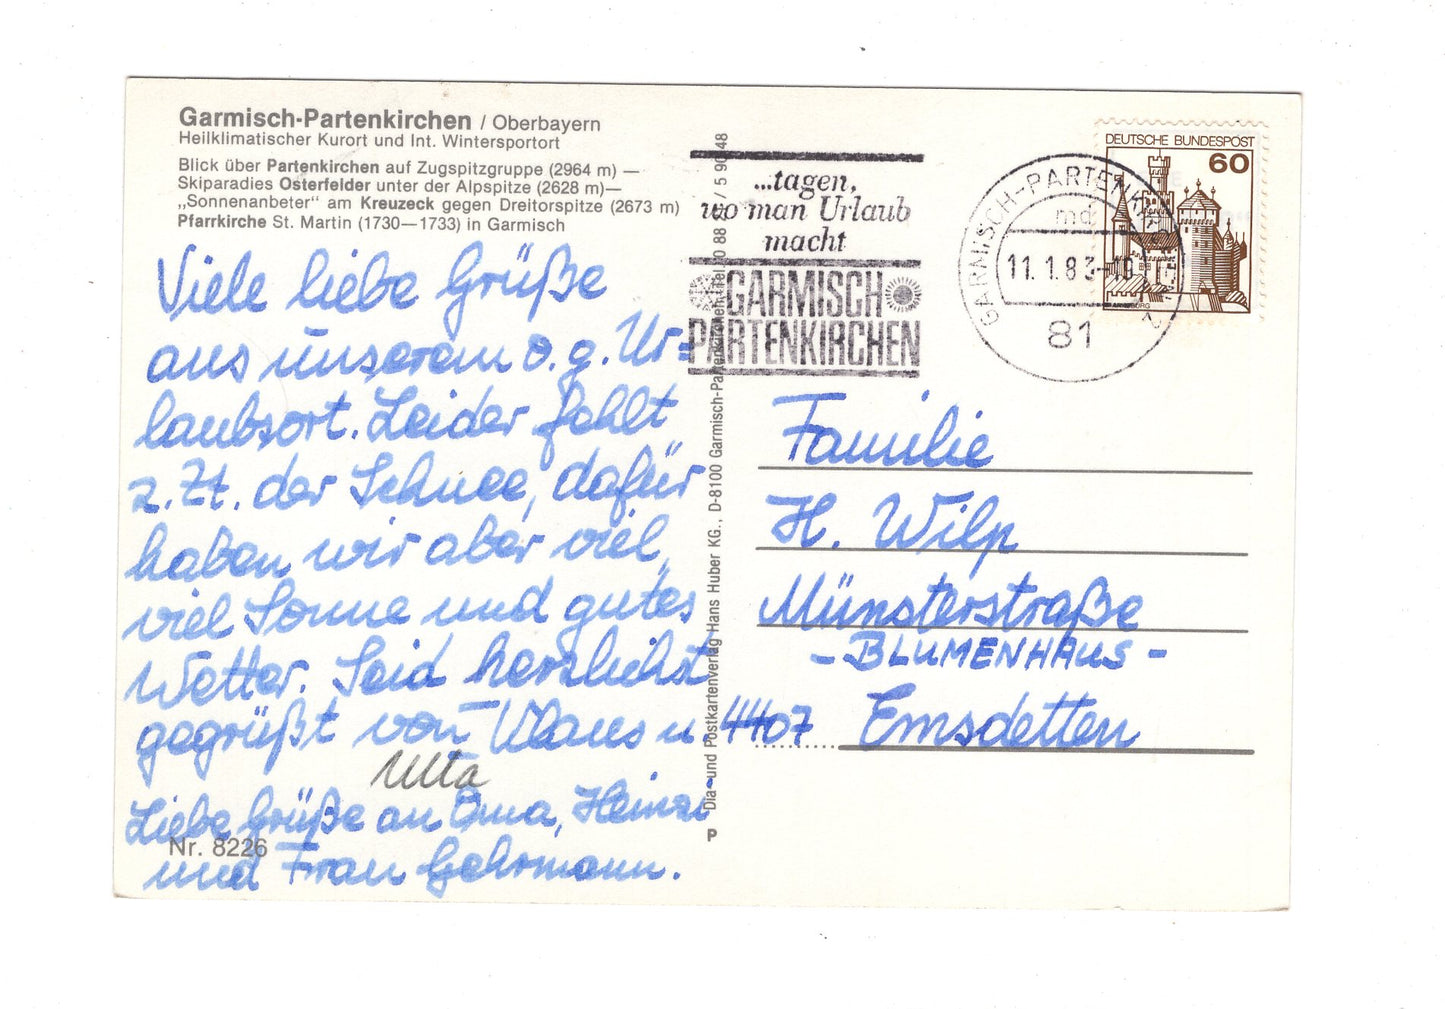 Garmisch-Partenkirchen / Oberbayern
Heilklimatischer Kurort und Int. Wintersportort
Blick über Partenkirchen auf Zugspitzgruppe (2964 m) —
Skiparadies Osterfelder unter der Alpspitze (2628 m)—
„Sonnenanbeter“ am Kreuzeck gegen Dreitorspitze (2673 m)
Pfarrkirche St. Martin (1730—1733) in Garmisch
Viele liebe Grüße
aus unserem o. g. Ur=
laubsort. Leider fehlt
z. Zt. der Schnee, dafür
haben wir aber viel,
viel Sonne und gutes
Wetter. Seid herzlichst
gegrüßt von Klaus u.
Utta
Liebe Grüße an Oma, Heinzi
und Frau Gehrmann.
Nr. 8226
P Dia- und Postkartenverlag Hans Huber KG., D-8100 Garmisch-Partenkirchen, Tel. 0 88 / 5 90 48
...tagen,
wo man Urlaub
macht
GARMISCH
PARTENKIRCHEN
GARMISCH-PARTENKIRCHEN 1
md
11.1.83-19
81
DEUTSCHE BUNDESPOST
60
Familie
H. Wilp
Münsterstraße
- BLUMENHAUS -
4407 Emsdetten